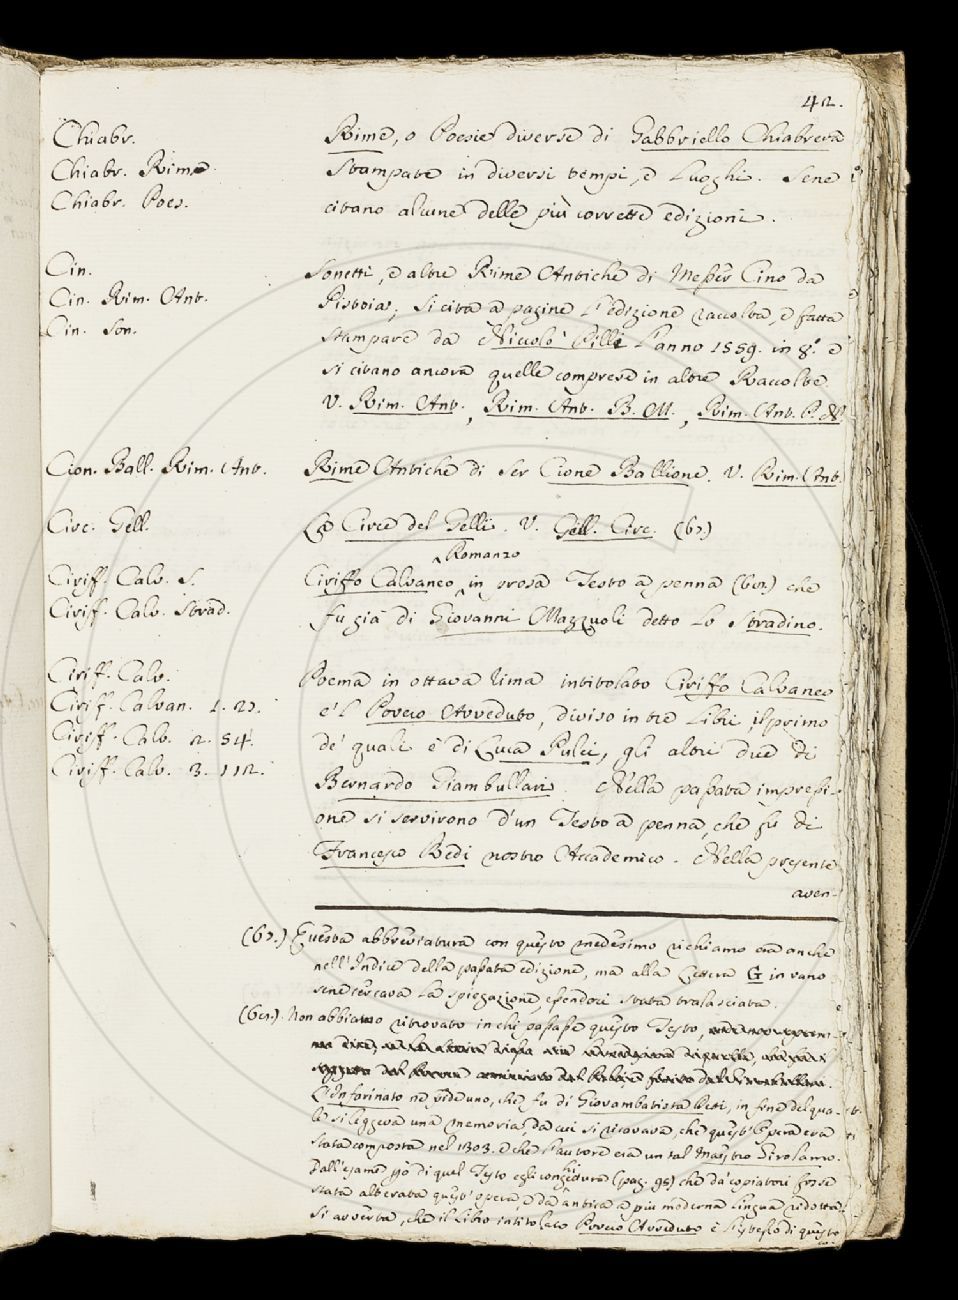 42.
Chiabr. Rime, o Poesie diverse di Gabbriello Chiabrera
Chiabr. Rime stampate in diversi tempi, e Luoghi. Sene
Chiabr. Poes. citano alcune delle più corrette edizioni.
Cin. Sonetti, e altre Rime Antiche di Messer Cino da
Cin. Rim. Ant. Pistoia; si cita a pagine l'edizione raccolta, e fatta
Cin. Son. stampare da Niccolò Pilli l'anno 1559. in 8.° e
si citano ancora quelle comprese in altre Raccolte.
V. Rim. Ant., Rim. Ant. B. M., Rim. Ant. P. N.
Cion. Ball. Rim. Ant. Rime Antiche di Ser Cione Ballione. V. Rim. Ant.
Circ. Gell. La Circe del Gelli. V. Gell. Circ. (61.)
Romanzo
Ciriff. Calv. S. Ciriffo Calvaneo in prosa Testo a penna (62.) che
Ciriff. Calv. Strad. fu già di Giovanni Mazzuoli detto lo Stradino.
Ciriff. Calv. Poema in ottava rima intitolato Ciriffo Calvaneo
Ciriff. Calvan. 1. 21. e 'l Povero Avveduto, diviso in tre Libri, il primo
Ciriff. Calv. 2. 54. de' quali è di Luca Pulci, gli altri due di
Ciriff. Calv. 3. 112. Bernardo Giambullari. Nella passata impressi-
one si servirono d'un Testo a penna, che fu di
Francesco Redi nostro Accademico. Nella presente
aven-
(61.) Questa abbreviatura con questo medesimo richiamo era anche
nell'Indice della passata edizione, ma alla Lettera G in vano
sene cercava la spiegazione, essendoci stata tralasciata.
(62.) Non abbiamo ritrovato in chi passasse questo Testo,
L'Infarinato ne vide uno, che fu di Giovambatista Deti, in fine del qua-
le si leggeva una memoria, da cui si ricavava, che quest'Opera era
stata composta nel 1303. e che l'autore era un tal Maestro Girolamo.
Dall'esame poi di quel Testo egli conghiettura (pag. 98) che da' copiatori fosse
stata alterata quest'opera, e da antica a più moderna lingua ridotta.
Si avverta, che il Libro intitolato Povero Avveduto è l'istesso di questo